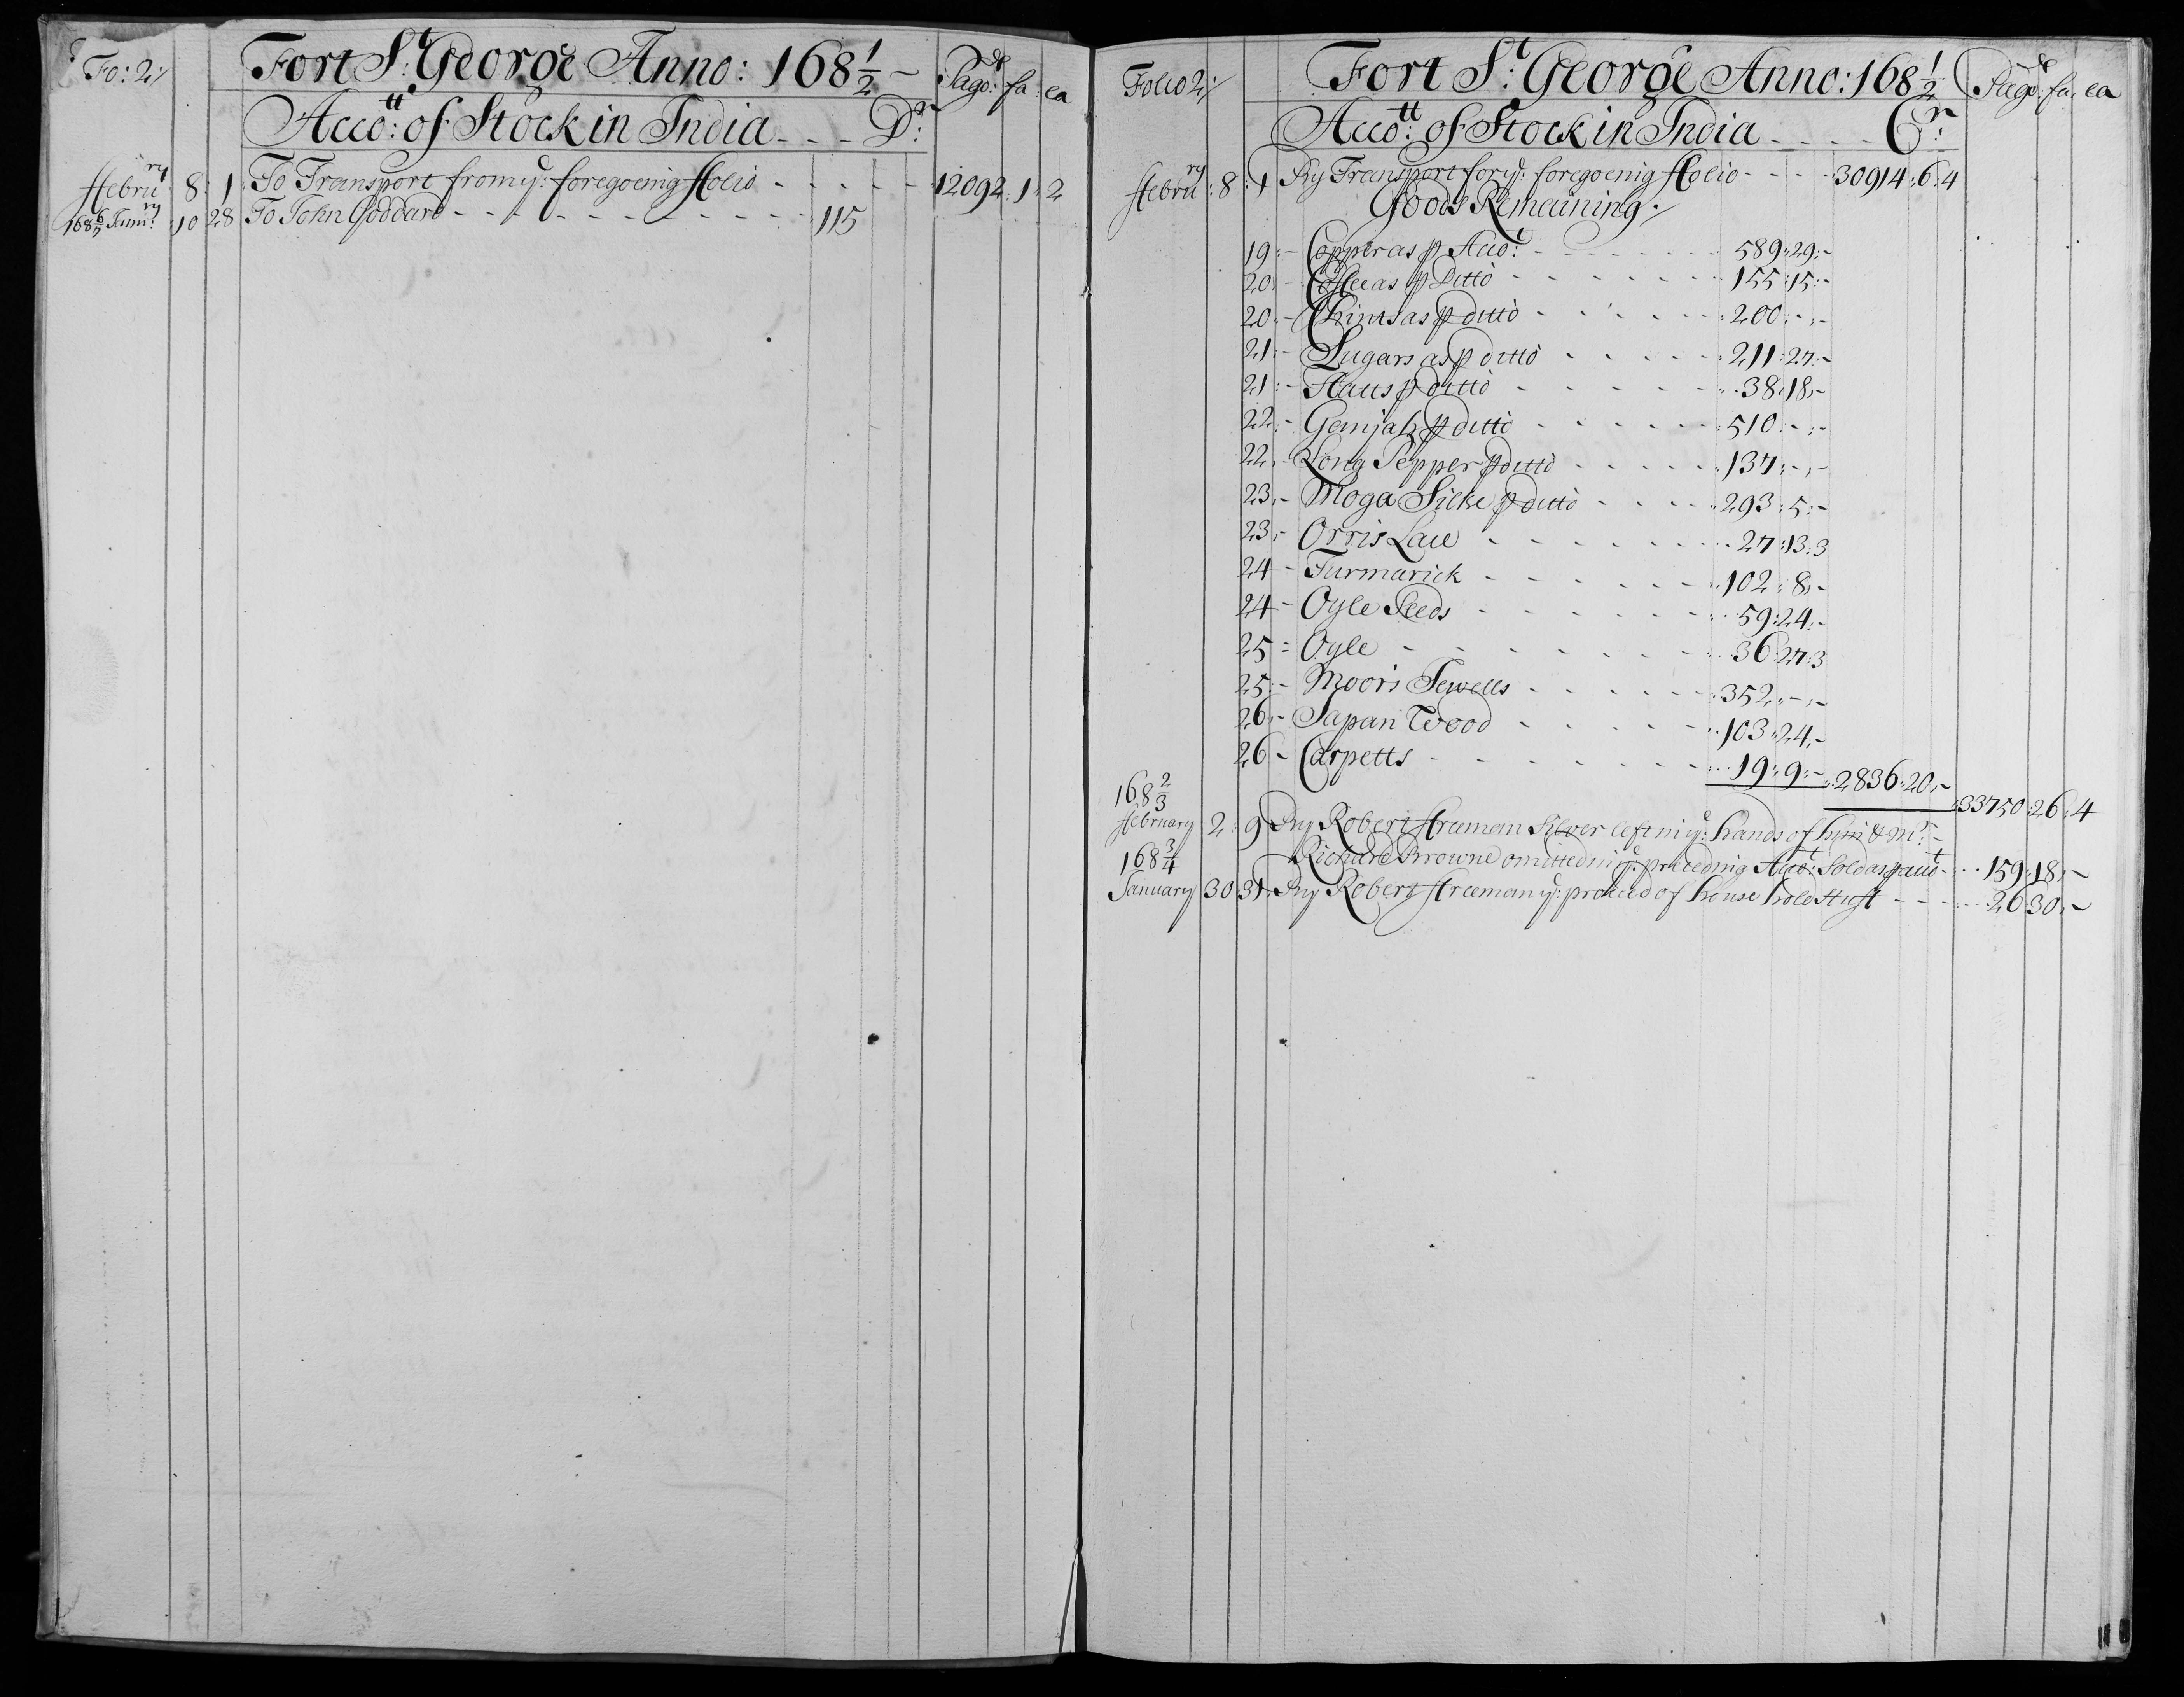 Fo: 2:/
Fort St: George Anno: 168 1/2 -
Pagods: fa: ca
Accott: of Stock in India - - - Dr:
Febru:ry 8: 1 To Transport from ye: foregoeing Folio - - - - - 12092: 1: 2
168 6/7 Janu:ry 10 28 To John Goddard - - - - - - - - - - - 115
Folio 2:/
Fort St: George Anno: 168 1/2
Pagods: fa: ca
Accott: of Stock in India - - - - Cr:
Febru:ry : 8 : 1 By Transport for ye: foregoeing Folio - - - - 30914: 6: 4
Goods Remaining:/
19:- Copper as p Accot: - - - - - - - 589: 29:-
20:- Coffee as p Ditto - - - - - - - 155: 15:-
20:- Chints as p ditto - - - - - - 200: -: -
21:- Sugars as p ditto - - - - - 211: 27:-
21:- Hatts p ditto - - - - - - 38: 18:-
22:- Genijah p ditto - - - - - - 510: -: -
22:- Long Pepper p ditto - - - - - 137: -: -
23:- Moga Silke p ditto - - - - 293: 5:-
23:- Orris Lace - - - - - - - 27: 13: 3
24 - Turmarick - - - - - - 102: 8:-
24 - Ogle Seeds - - - - - - 59: 24:-
25 - Ogle - - - - - - - - 36: 27: 3
25:- Moors Jewells - - - - - - 352: -: -
26:- Japan Wood - - - - - 103: 24:-
26 - Carpetts - - - - - - - - 19: 9:- 2836: 20:-
33750: 26: 4
168 2/3
February 2: 9 By Robert Freeman Silver left in ye: hands of him & Mr: -
Richard Browne omitted in ye: preceding Accot: Sold as p accot - - - 159: 18:-
168 3/4
January 30 31: By Robert Freeman ye: proceed of house hold Stuff - - - - 26: 30:-